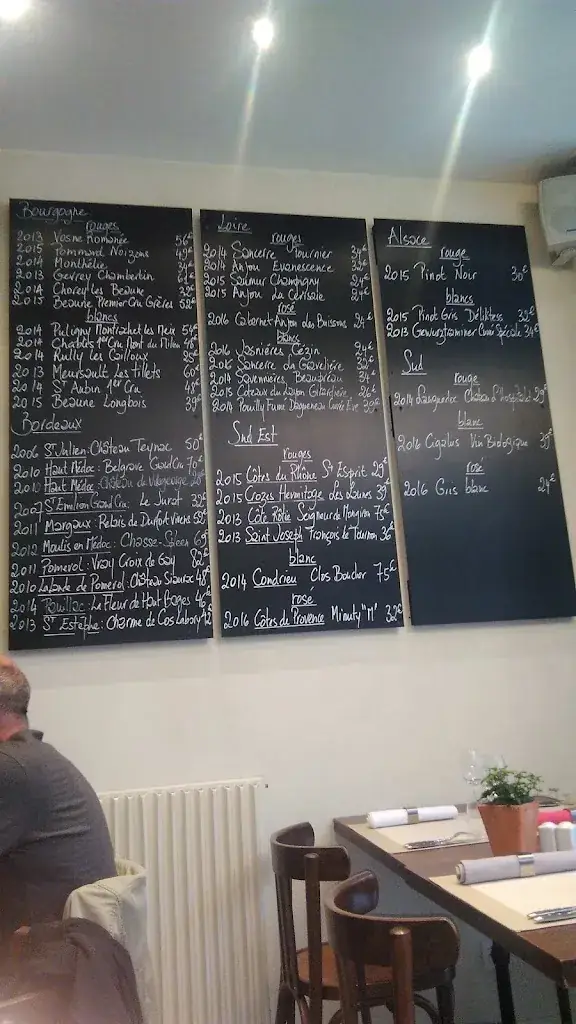 Bourgogne
rouges
2013 Vosne Romanée 56€
2015 Pommard Noizons 49€
2014 Monthélie
2013 Gevrey Chambertin
2014 Chorey les Beaune 32€
2015 Beaune Premier Cru Grèves 52€
blancs
2014 Puligny Montrachet les Meix 54€
2014 Chablis 1er Cru Mont du Milieu 48€
2014 Rully les Cailloux
2013 Meursault les Tillets 60€
2014 St Aubin 1er Cru 48€
2015 Beaune Longbois 39€
Bordeaux
2006 St Julien: Château Teynac 50€
2010 Haut Médoc: Belgrave Grand Cru
2010 Haut Médoc: Château de Villegeorge
2007 St Emilion Grand Cru: Le Jurat 39€
2011 Margaux: Relais de Durfort Vivens 58€
2012 Moulis en Médoc: Chasse-Spleen 69€
2011 Pomerol: Vray Croix de Gay 82€
2010 Lalande de Pomerol: Château Siaurac 48€
2014 Pauillac: La Fleur de Haut Bages 46€
2013 St Estèphe: Charme de Cos Labory 42€
Loire
rouges
2014 Sancerre Fournier
2014 Anjou Evanescence 32€
2015 Saumur Champigny 24€
2015 Anjou La Cerisaie
rosé
2016 Cabernet Anjou des Buissons 24€
blancs
Jasnières Gezin
2016 Sancerre La Gravelière
2014 Savennières, Beaupréau 34€
2015 Coteaux du Layon Girardière 26€
2014 Pouilly Fumé Dagueneau Cuvée Eve
Sud Est
rouges
2015 Côtes du Rhône St Esprit 29€
2015 Crozes Hermitage des Launes 39€
2013 Côte Rôtie Seigneur de Maugiron 75€
2013 Saint Joseph François de Tournon 36€
blanc
2014 Condrieu Clos Boucher 75€
rosé
2016 Côtes de Provence Minuty "M" 32€
Alsace
rouge
2015 Pinot Noir 30€
blancs
2015 Pinot Gris Délikless 32€
2013 Gewurztraminer Cuvée Spéciale 34€
Sud
rouge
2014 Languedoc Château d'Hospitalet 29€
blanc
2016 Cigalus Vin Biologique 39€
rosé
2016 Gris blanc